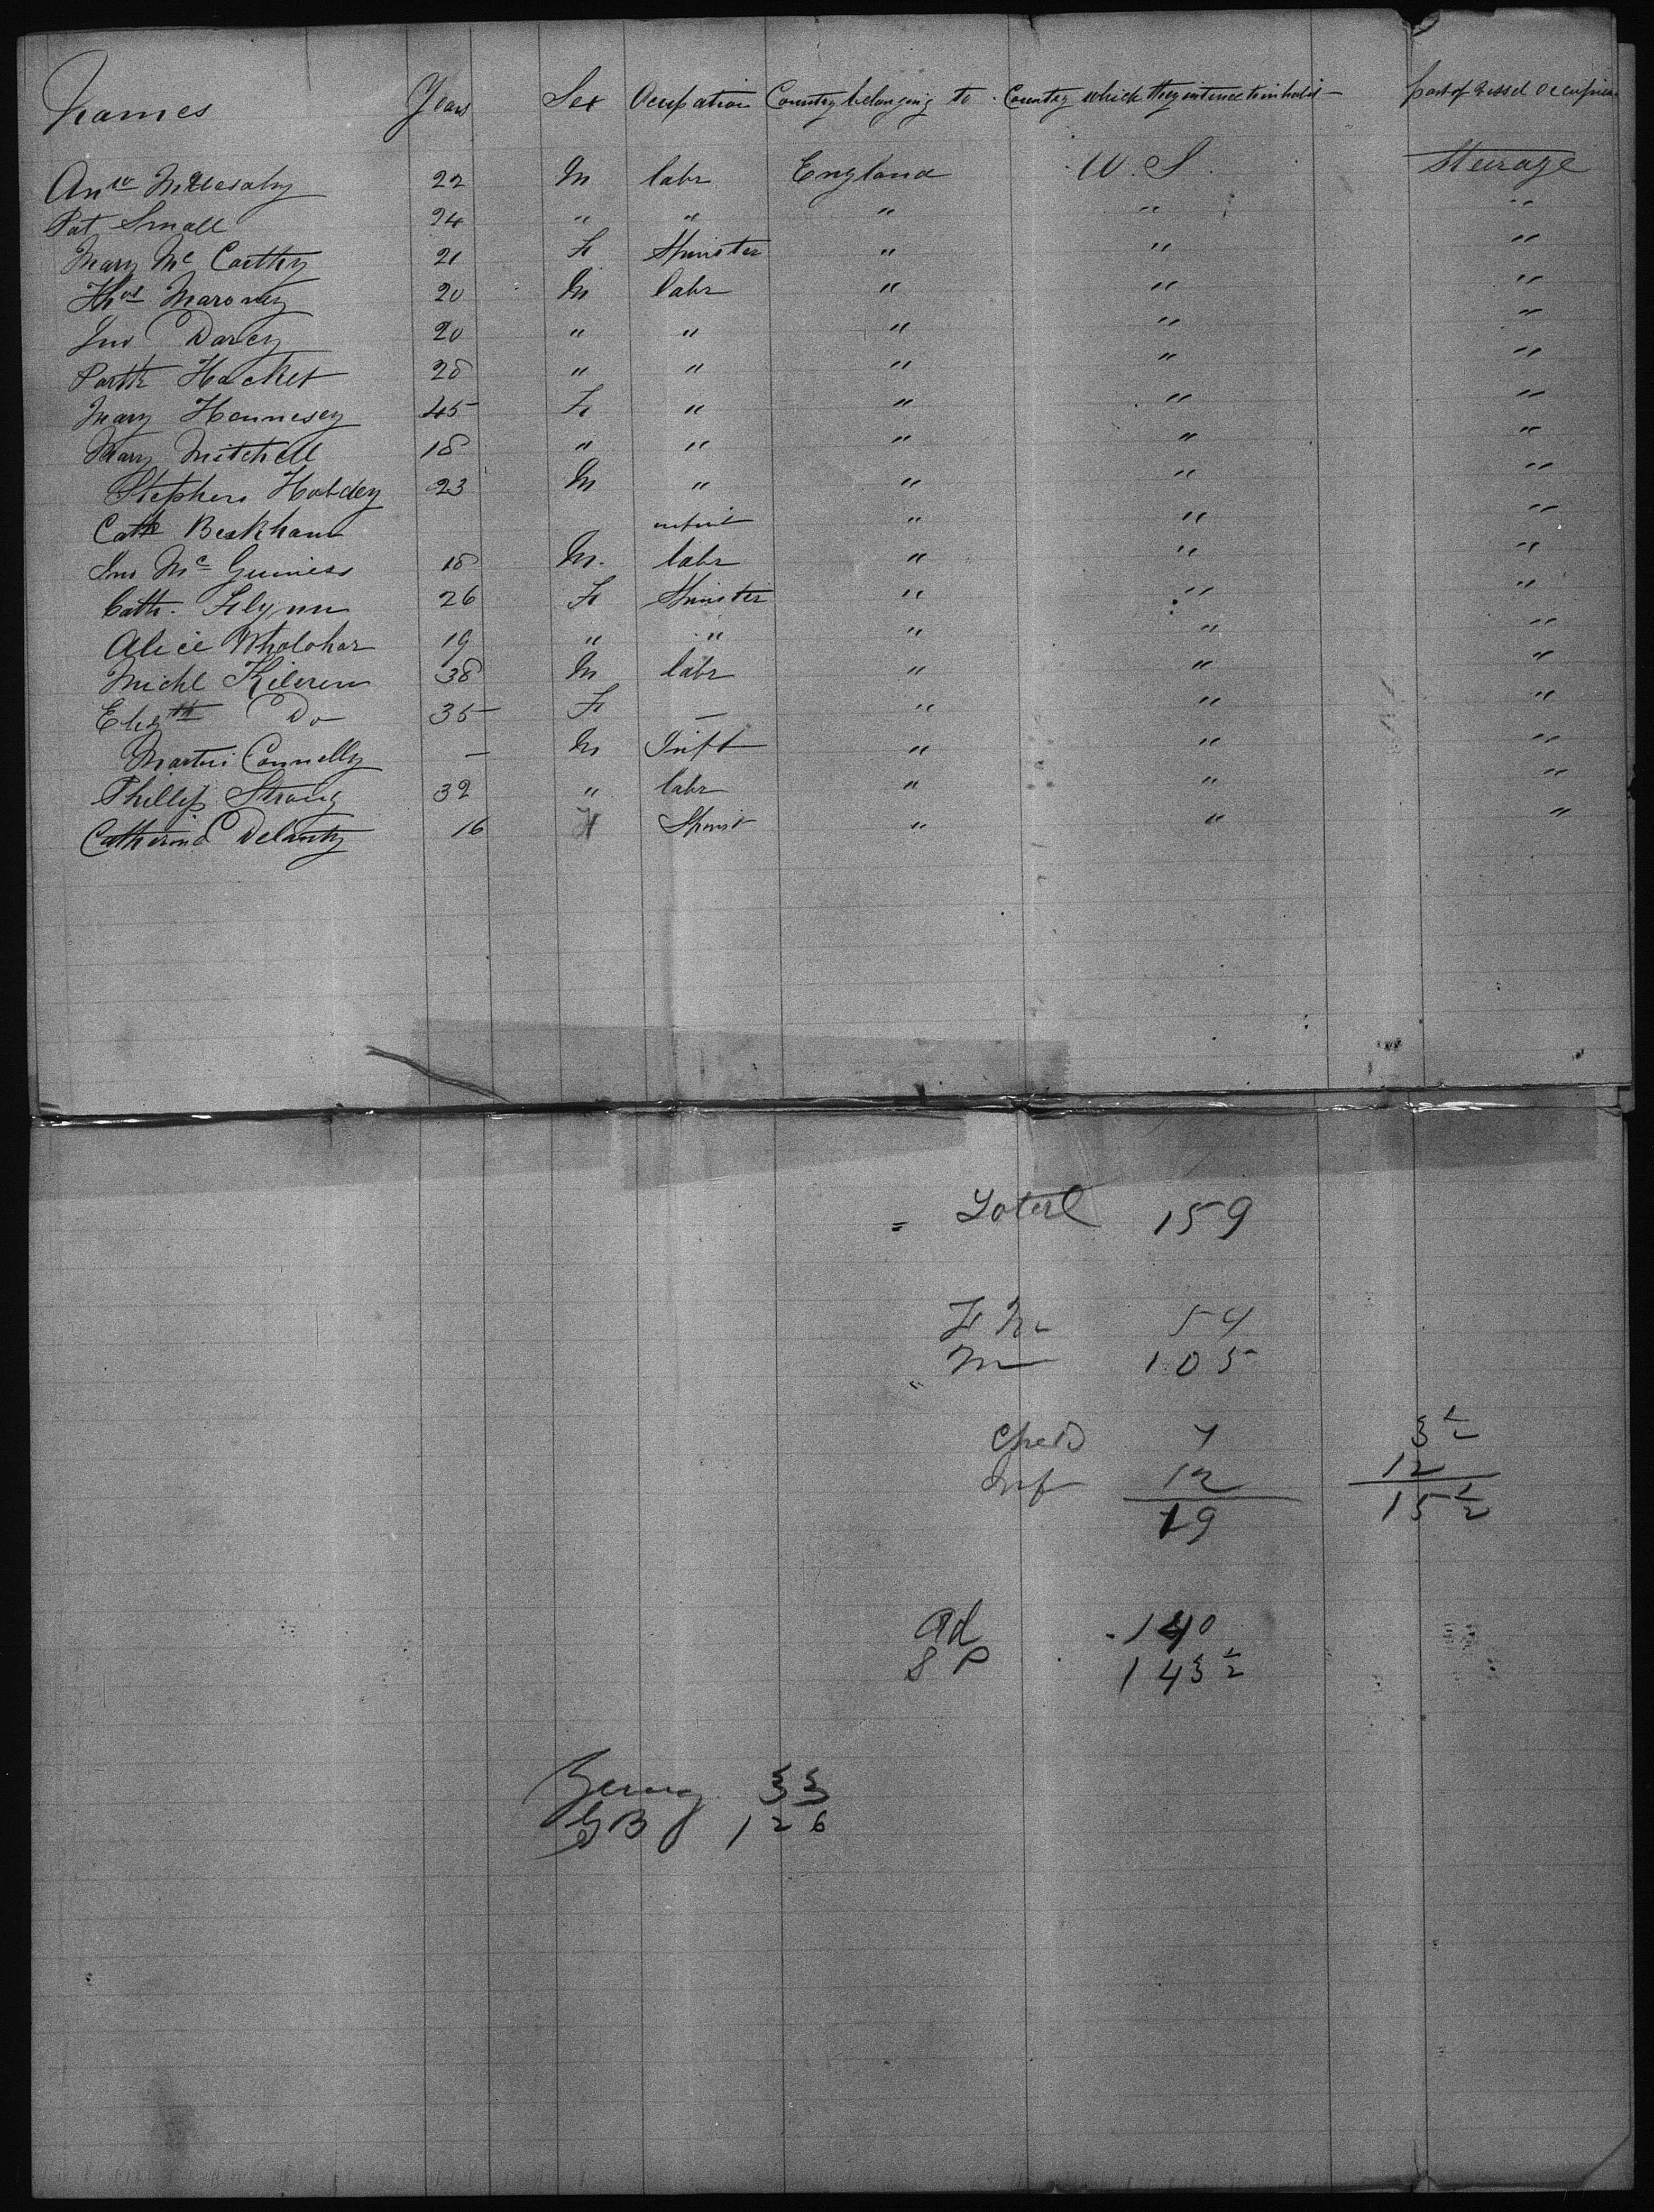 Names Years Sex Ocupation Country belonging to Country which they intend to inhabit part of Vessel Occupied
Anw 22 M labr England U. S. Steerage
Pat Small 24 " " " " "
Mary Mc Carthy 21 F Spinster " " "
Thos Maroney 20 M labr " " "
Jno Darcy 20 " " " " "
Hacket 28 " " " " "
Mary Hennesey 45 F " " " "
Mary Mitchell 18 " " " " "
Stephen Hobdey 23 M " " " "
Cath infnt " " "
Jno Mc Guiness 18 M. labr " " "
Cath. Flynn 26 F Spinster " " "
Alice 19 " " " " "
Michl Kileren 38 M labr " " "
Elizth Do 35 F — " " "
Martin Connelly — M Inft " " "
Phillip Strong 32 " labr " " "
Catherine Delanty 16 F Spinst " " "
= Total 159
F M 54
" M 105
Ched 7 3 1/2
Inf 12 12
19 15 1/2
Ad 140
S P 143 1/2
Germy 33
G B 126